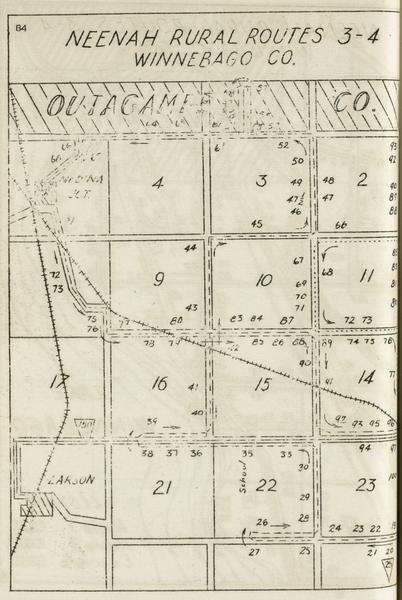 84
NEENAH RURAL ROUTES 3-4
WINNEBAGO CO.
OUTAGAMIE CO.
66 6 52 93
66 50 92
4 3 49 48 2 90
47½ 47 89
46 88
JCT. 45 66
44 67
72 9 10 69 68 11
73 43 70
75 77 80 83 84 87 71 72 73
76 78 79 85 86 88 89 74 75 76
90
17 16 41 15 91 14 77
40
150 39 92 93 95 96
38 37 36 35 33 94 97
30
LARSON 21 School 22 29 23 100
28
26 24 23 22 19
27 25 21 20
25